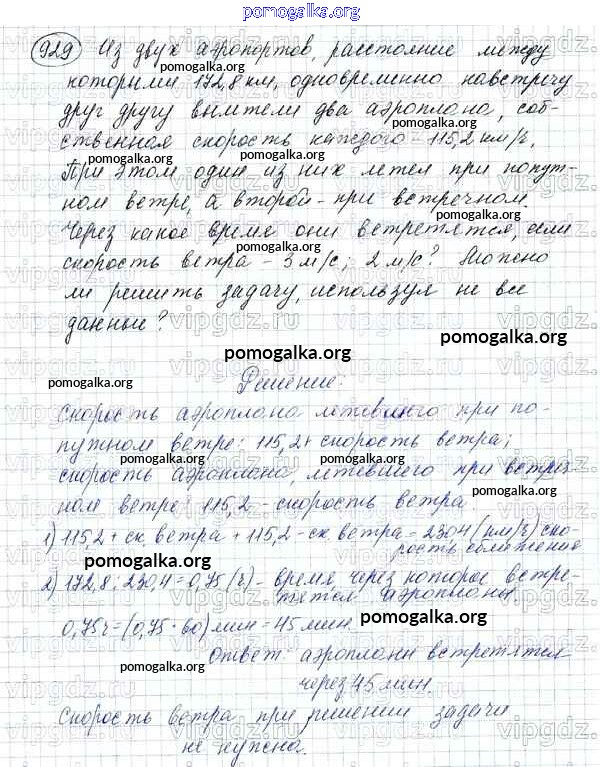 pomogalka.org
929 Из двух аэропортов, расстояние между
pomogalka.org
которыми 172,8 км, одновременно навстречу
друг другу вылетели два аэроплана, соб-
pomogalka.org
ственная скорость каждого - 115,2 км/г.
pomogalka.org
При этом один из них летел при попут-
ном ветре, а второй - при встречном.
pomogalka.org
Через какое время они встретятся, если
скорость ветра - 3 м/с; 2 м/с? Можно
ли решить задачу, используя не все
данные?
vipgdz.ru
pomogalka.org
pomogalka.org
Решение:
pomogalka.org
Скорость аэроплана летевшего при по-
путном ветре: 115,2 + скорость ветра;
pomogalka.org
pomogalka.org
скорость аэроплана, летевшего при встреч-
ном ветре: 115,2 - скорость ветра.
pomogalka.org
1) 115,2 + ск. ветра + 115,2 - ск. ветра = 230,4 (км/г) ско-
рость сближения
pomogalka.org
2) 172,8 : 230,4 = 0,75 (г) - время, через которое встре-
тятся аэропланы.
pomogalka.org
0,75 г = (0,75 · 60) мин = 45 мин
pomogalka.org
Ответ: аэропланы встретятся
pomogalka.org
через 45 мин.
Скорость ветра при решении задачи
pomogalka.org
не нужна.